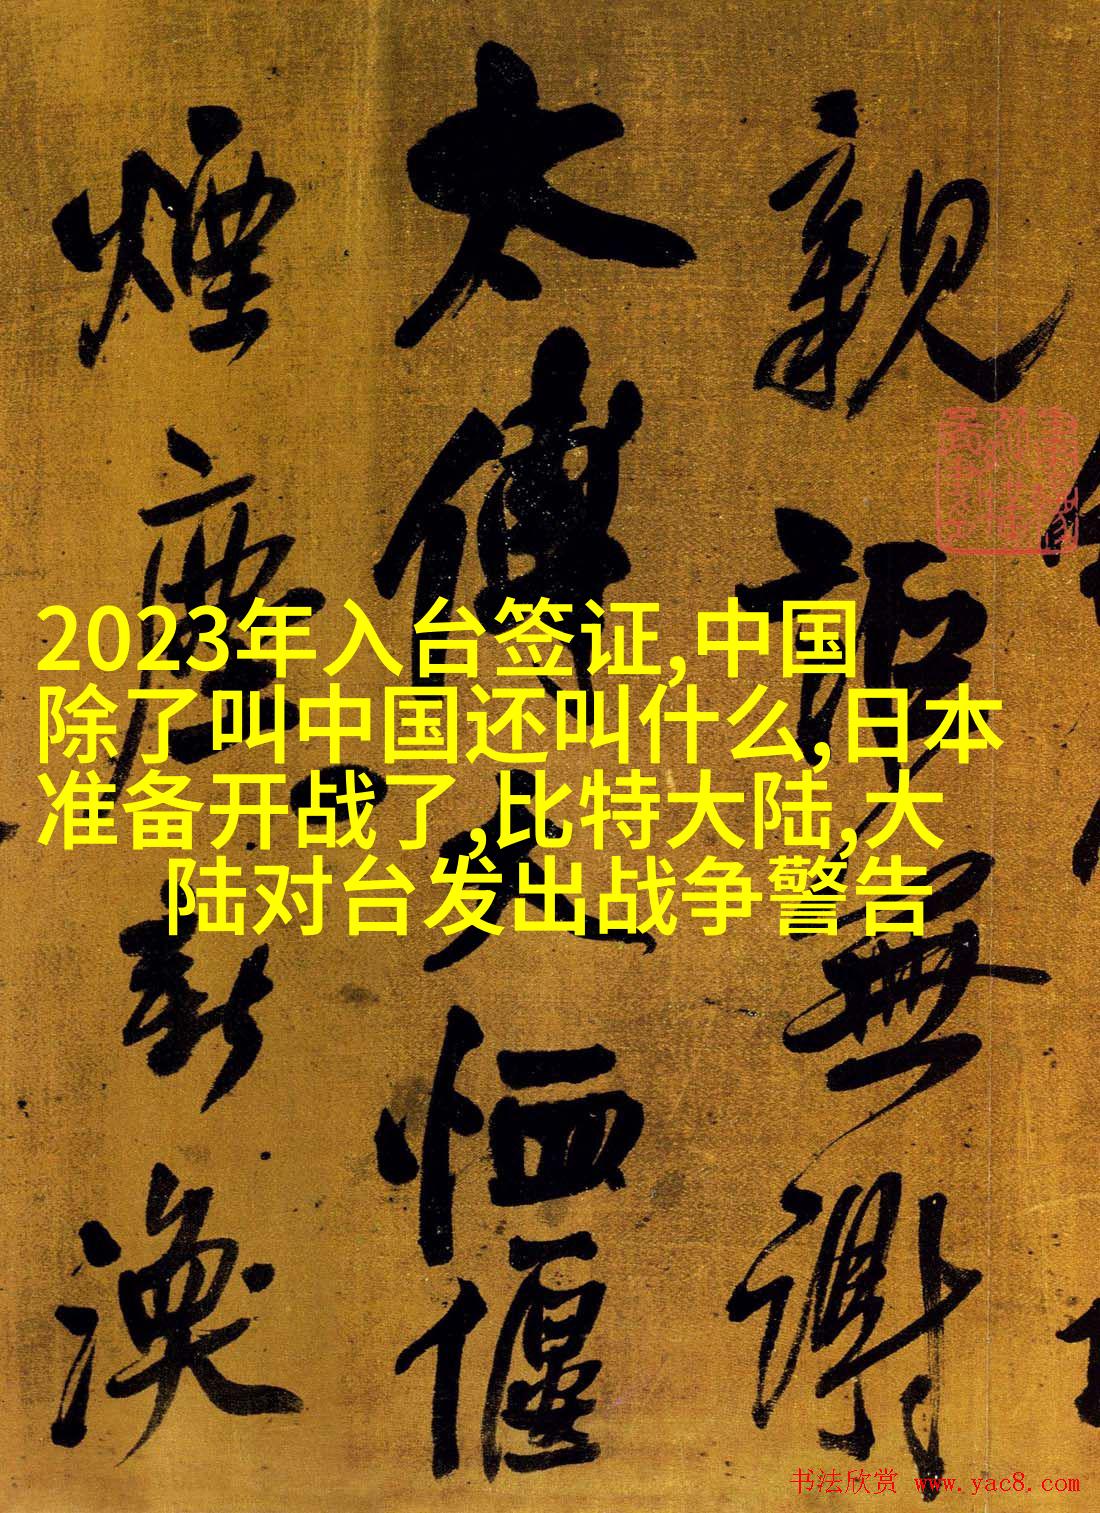 親詎無謝
太傅大恤偃
煙塵新渙
2023年入台签证,中国
除了叫中国还叫什么,日本
准备开战了,比特大陆,大
陆对台发出战争警告
书法欣赏 www.yac8.com